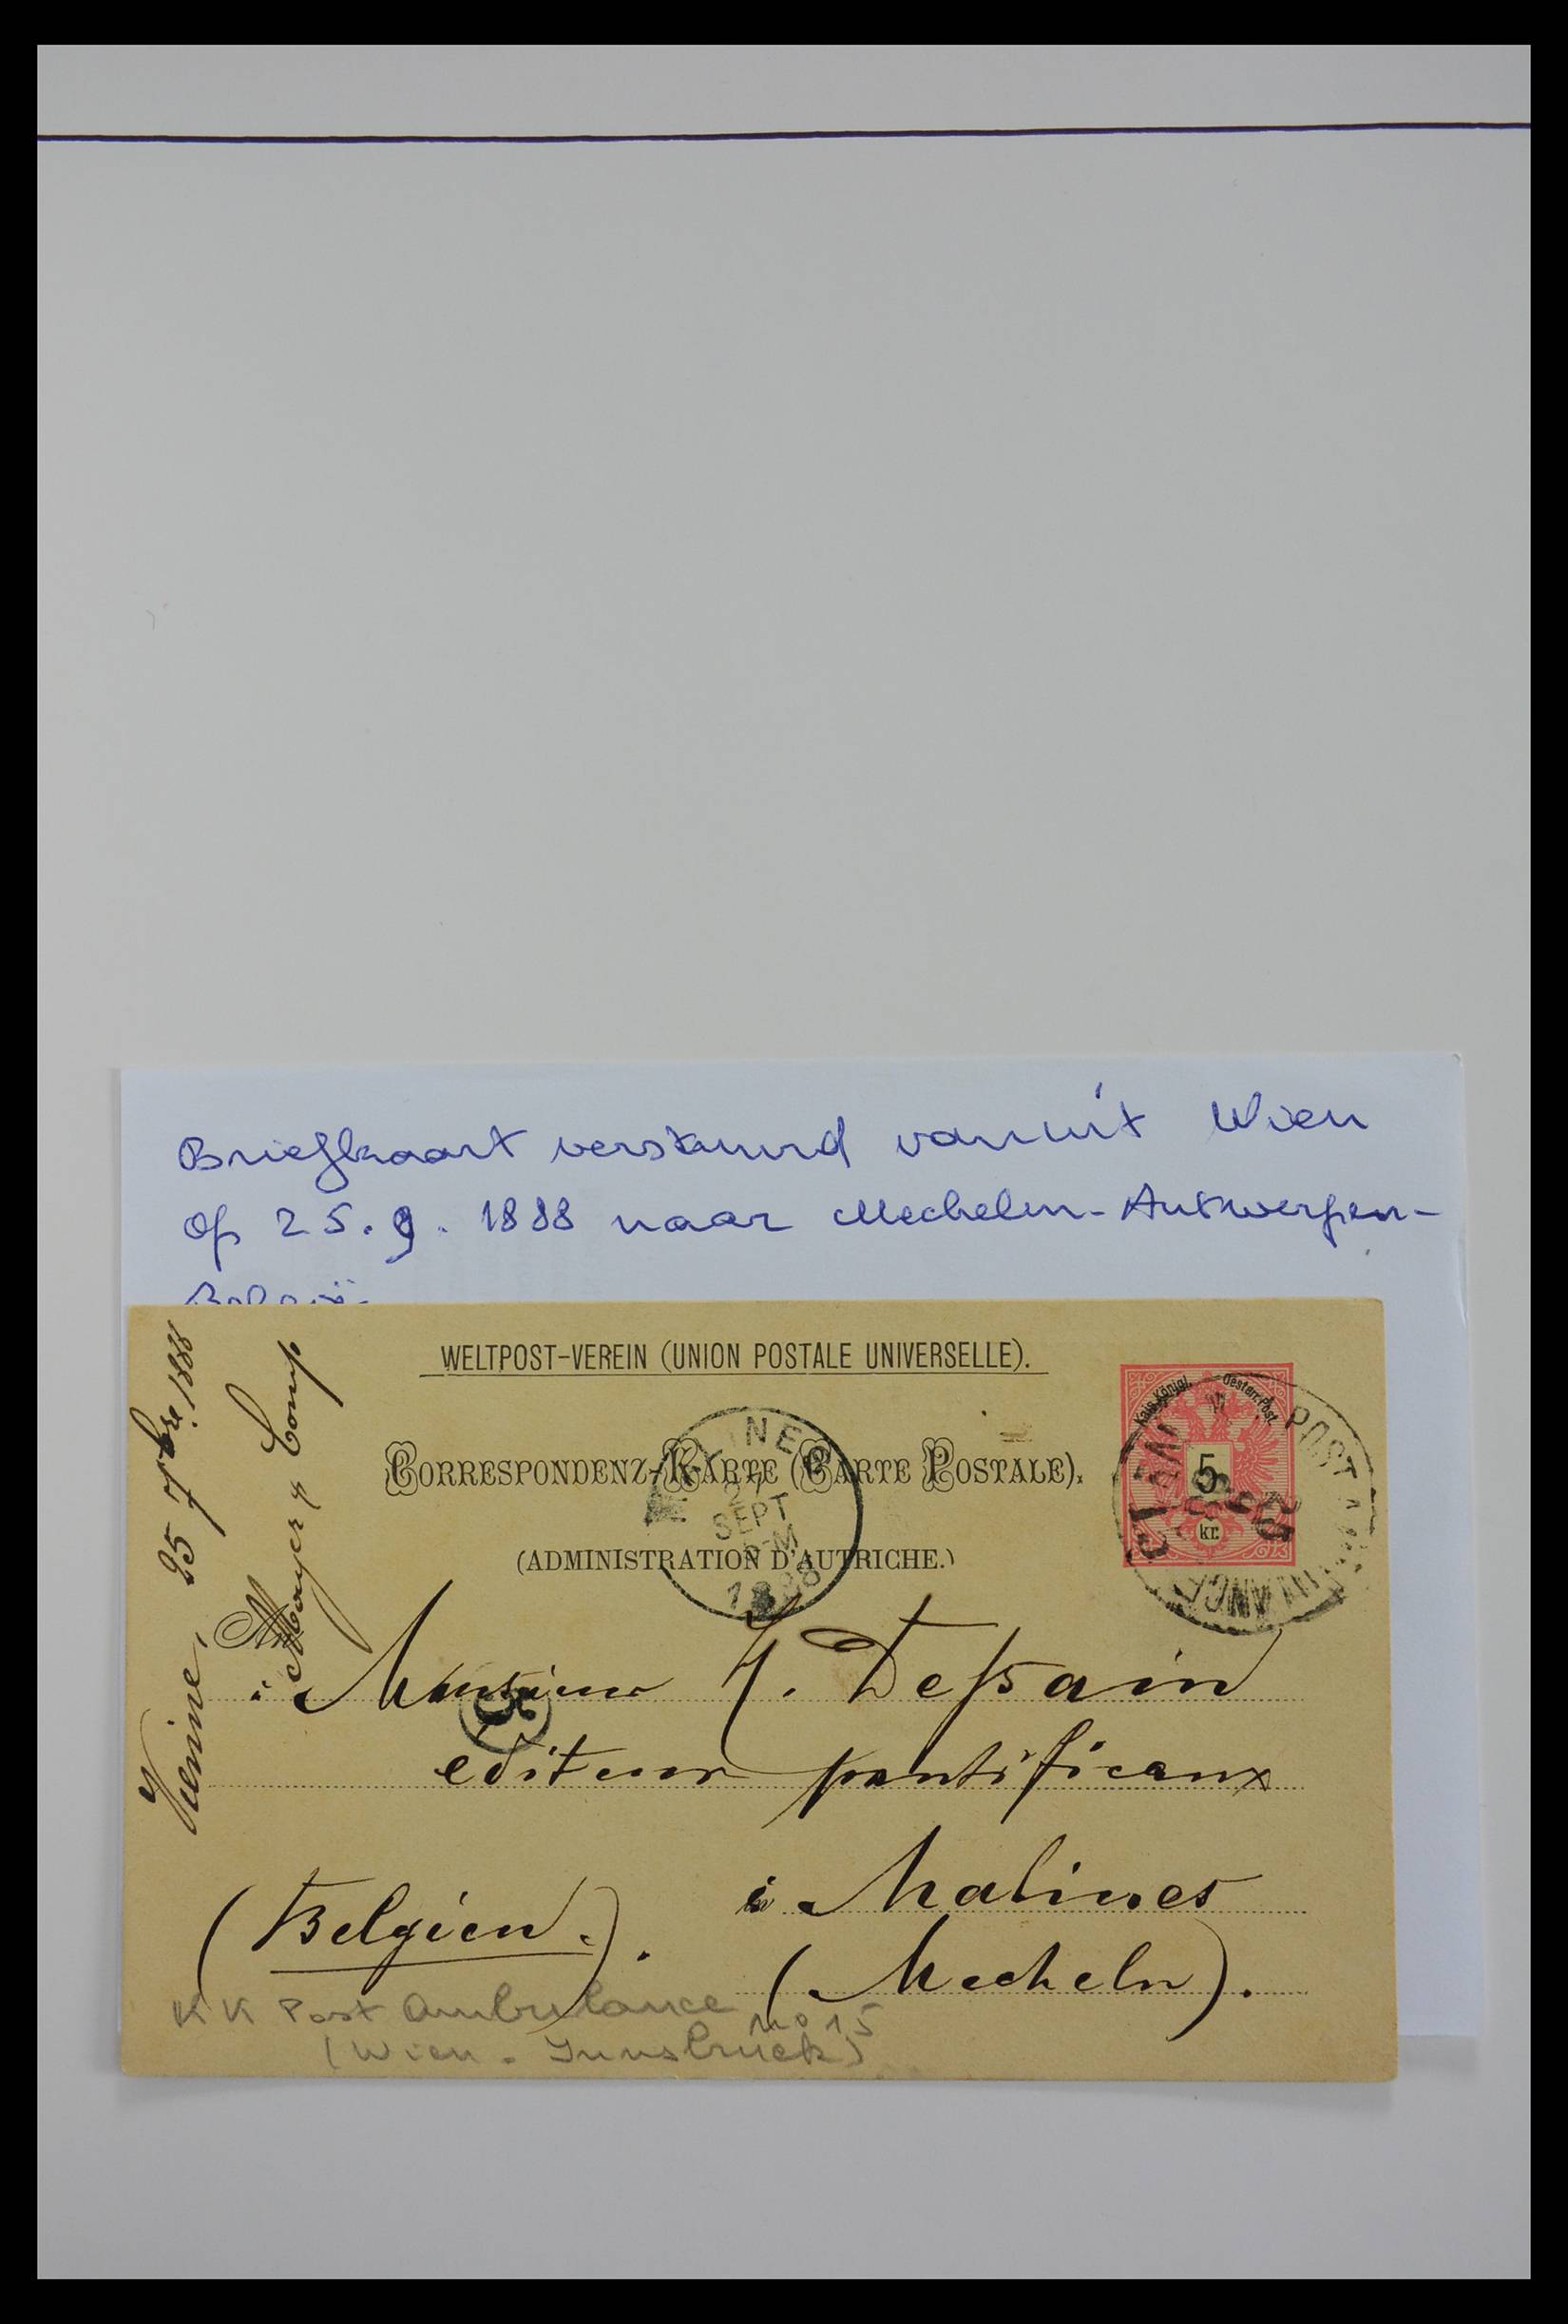 Briefkaart verstuurd vanuit Wien
op 25.9.1888 naar Mechelen-Antwerpen-
België.
WELTPOST-VEREIN (UNION POSTALE UNIVERSELLE).
CORRESPONDENZ-KARTE (CARTE POSTALE).
(ADMINISTRATION D'AUTRICHE.)
Kais. Königl. Oesterr. Post.
5
kr.
POST AMBULANCE
27
SEPT
1888
5
Vienne, 25 7bre. 1888
Mayer & Comp
Monsieur H. Dessain
editeur pontificaux
à Malines
(Mecheln).
(Belgien.).
KK Post Ambulance no 15
(Wien - Innsbruck)